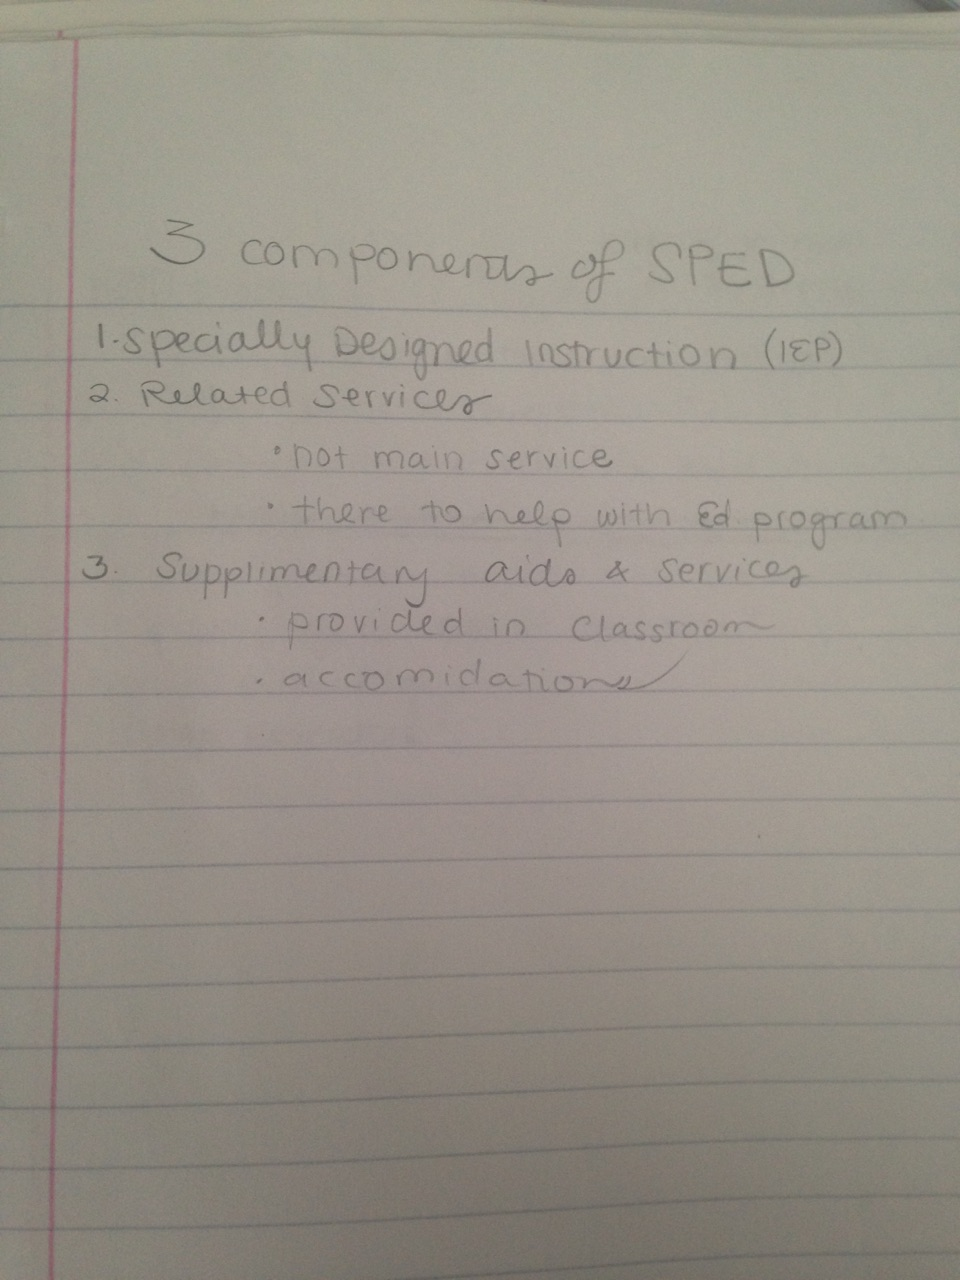 3 components of SPED
1. Specially Designed Instruction (IEP)
2. Related Services
• not main service
• there to help with Ed program
3. Supplimentary aids & services
• provided in classroom
• accomidations